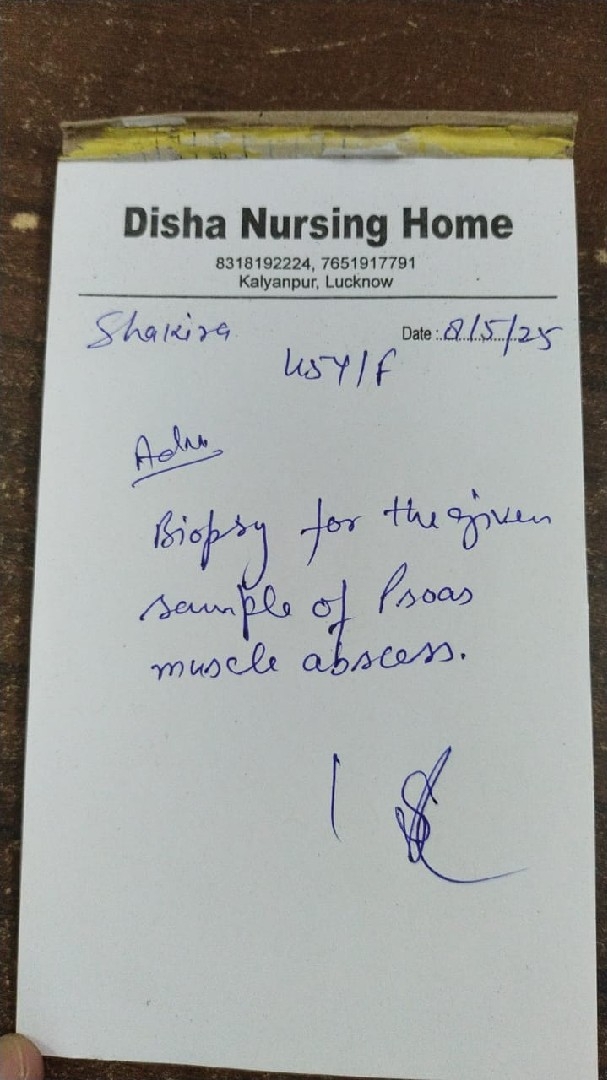 Disha Nursing Home
8318192224, 7651917791
Kalyanpur, Lucknow
Shakira
Date : 8/5/25
45Y/F
Adv.
Biopsy for the given
sample of Psoas
muscle abscess.